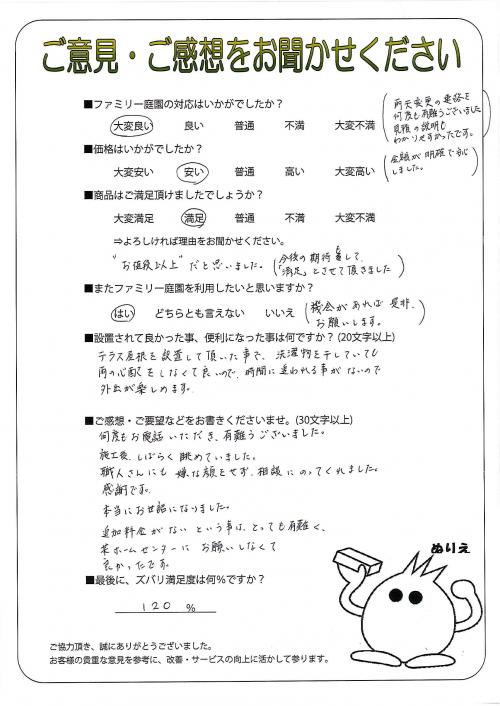 ご意見・ご感想をお聞かせください
■ファミリー庭園の対応はいかがでしたか?
大変良い 良い 普通 不満 大変不満
雨天変更の連絡を
何度も有難うございました
見積の説明も
わかりやすかったです。
■価格はいかがでしたか?
大変安い 安い 普通 高い 大変高い
金額が明確で安心
しました。
■商品はご満足頂けましたでしょうか?
大変満足 満足 普通 不満 大変不満
⇒よろしければ理由をお聞かせください。
"お値段以上"だと思いました。
今後の期待も
「満足」とさせて頂きました
■またファミリー庭園を利用したいと思いますか?
はい どちらとも言えない いいえ
機会があれば是非、
お願いします。
■設置されて良かった事、便利になった事は何ですか? (20文字以上)
テラス屋根を設置して頂いた事で、洗濯物を干していても
雨の心配をしなくて良いので、時間に追われる事がないので
外出が楽しめます。
■ご感想・ご要望などをお書きくださいませ。(30文字以上)
何度もお電話いただき、有難うございました。
施工後、しばらく眺めていました。
職人さんにも嫌な顔をせず、相談にのってくれました。
感謝です。
本当にお世話になりました。
追加料金がないという事は、とっても有難く、
某ホームセンターにお願いしなくて
良かったです。
■最後に、ズバリ満足度は何%ですか?
120 %
ぬりえ
ご協力頂き、誠にありがとうございました。
お客様の貴重な意見を参考に、改善・サービスの向上に活かして参ります。